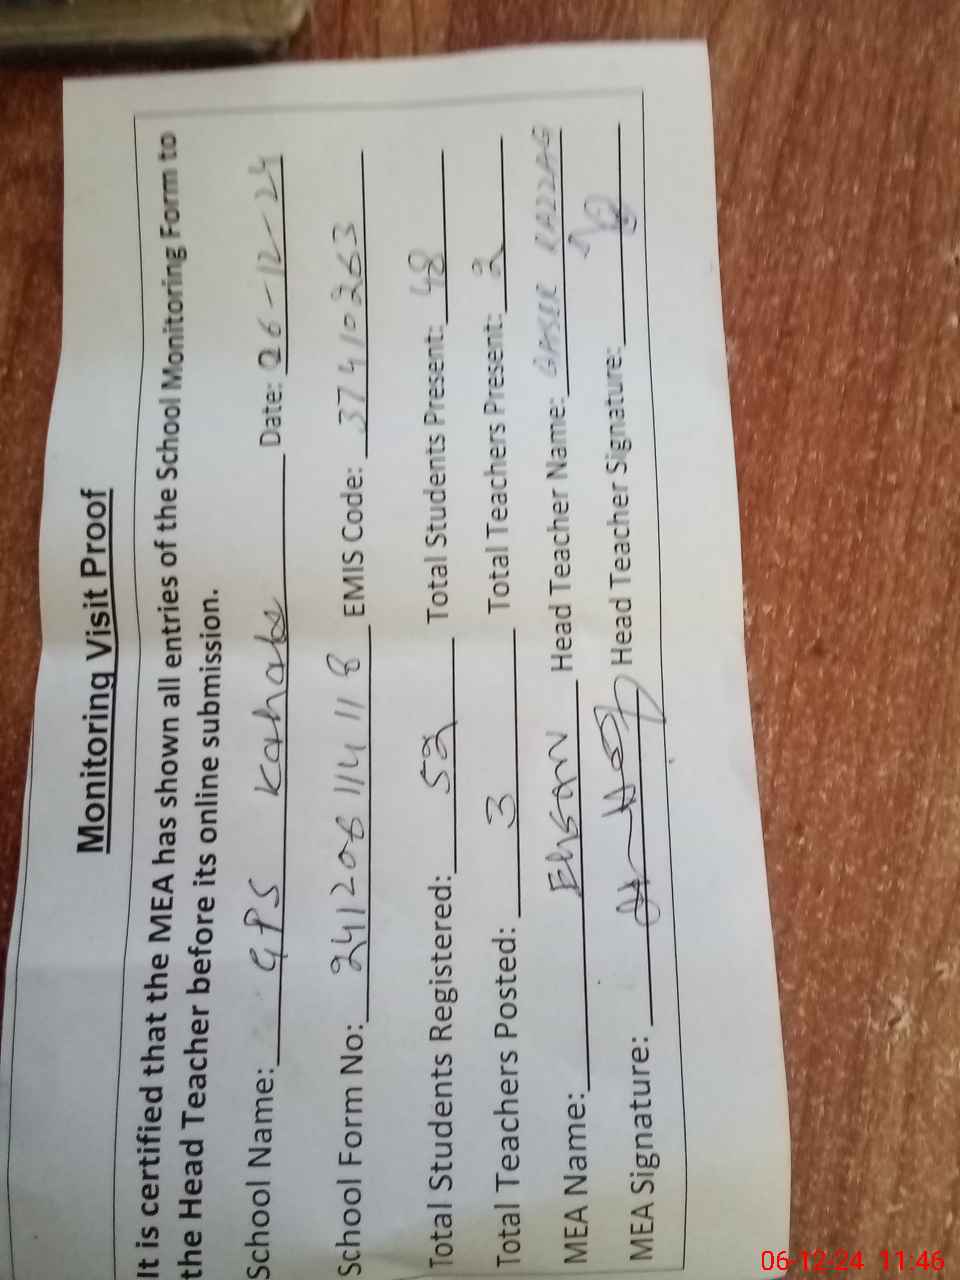 Monitoring Visit Proof
It is certified that the MEA has shown all entries of the School Monitoring Form to
the Head Teacher before its online submission.
School Name: GPS Kahala Date: 26-12-24
School Form No: 241206114118 EMIS Code: 37410263
Total Students Registered: 52 Total Students Present: 48
Total Teachers Posted: 3 Total Teachers Present: 2
MEA Name: Ehsan Head Teacher Name: RAZZAQ
MEA Signature: Head Teacher Signature:
06-12-24 11:46